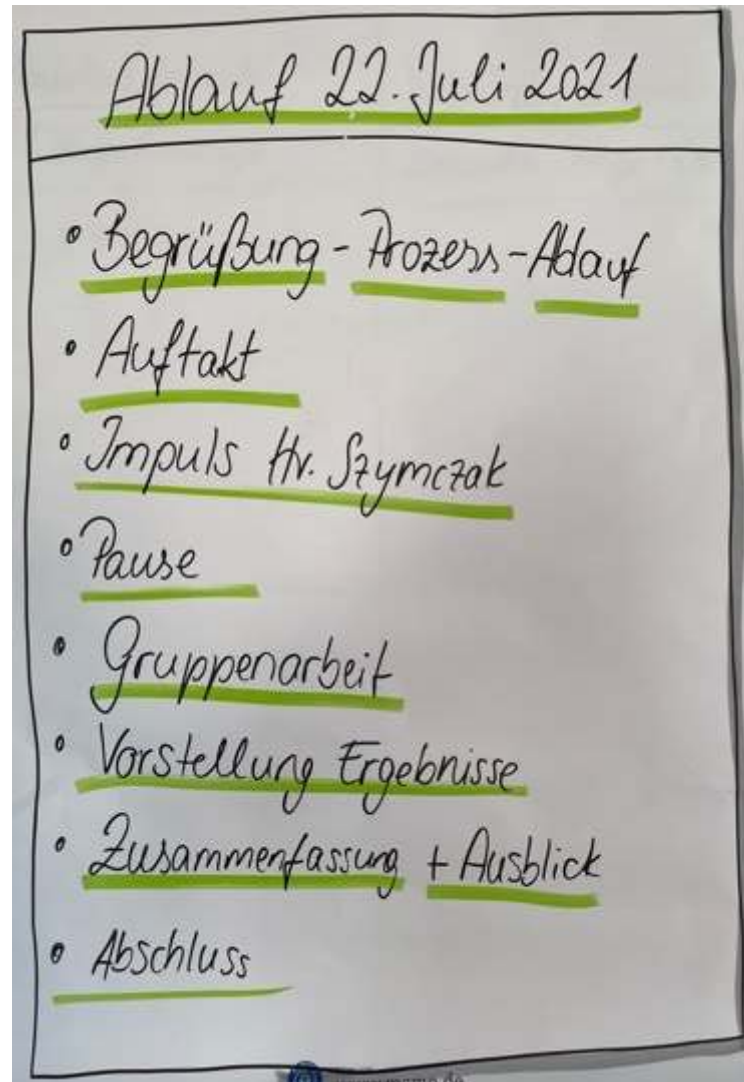 Ablauf 22. Juli 2021
• Begrüßung - Prozess - Ablauf
• Auftakt
• Impuls Hr. Szymczak
• Pause
• Gruppenarbeit
• Vorstellung Ergebnisse
• Zusammenfassung + Ausblick
• Abschluss